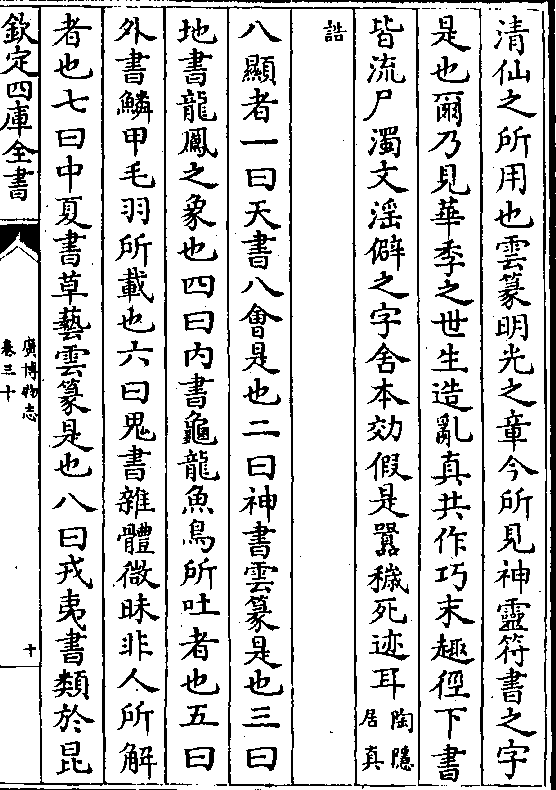 清仙之所用也雲篆明光之章今所見神靈符書之字
是也爾乃見華季之世生造亂真共作巧末趣徑下書
皆流尸濁文淫僻之字舍本效假是囂穢死迹耳陶隱居真
誥
八顯者一曰天書八會是也二曰神書雲篆是也三曰
地書龍鳳之象也四曰内書龜龍魚鳥所吐者也五曰
外書鱗甲毛羽所載也六曰鬼書雜體微昧非人所解
者也七曰中夏書草藝雲篆是也八曰戎夷書類於昆
欽定四庫全書
廣博物志
卷三十
十